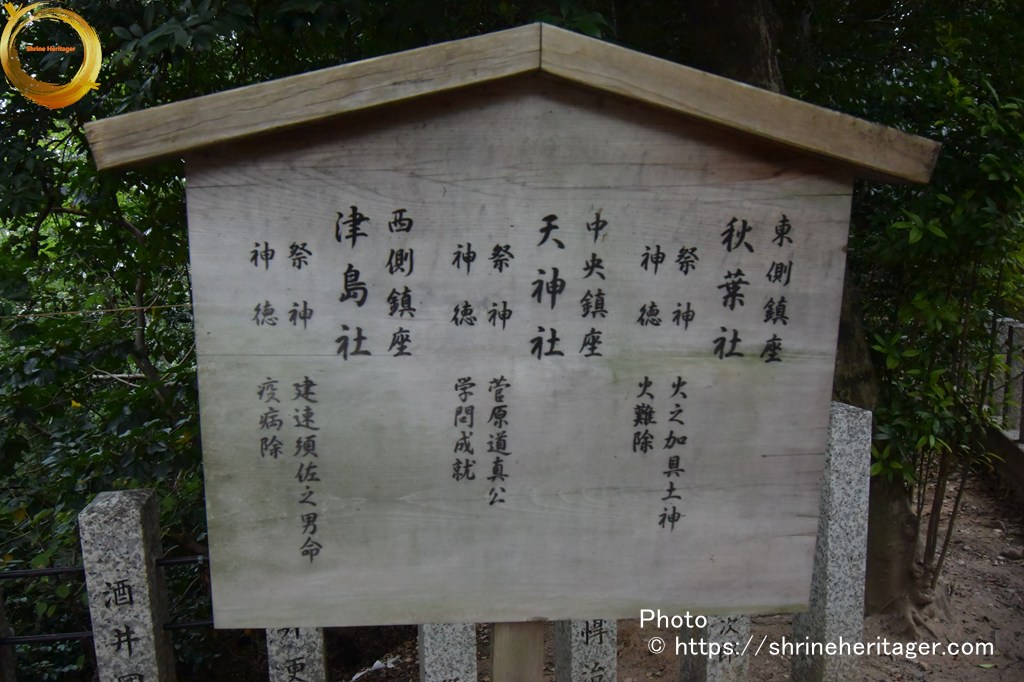 東側鎮座
秋葉社
祭神 火之加具土神
神徳 火難除
中央鎮座
天神社
祭神 菅原道真公
神徳 学問成就
西側鎮座
津島社
祭神 建速須佐之男命
神徳 疫病除
酒井
Shrine Heritager
Photo
© https://shrineheritager.com